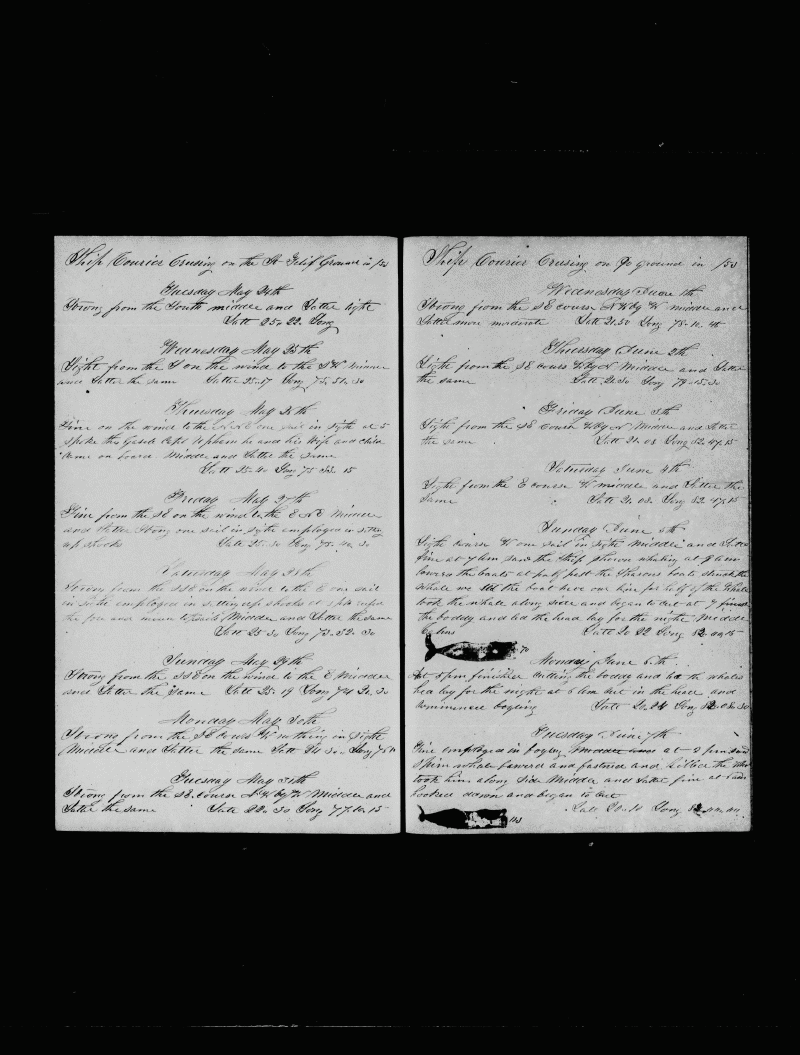 Ship Courier Crusing on the St Felix Ground in /53
Tuesday May 24th
Strong from the South middle and Latter light
Latt 25. 22. Long
Wednesday May 25th
Light from the S on the wind to the SW Middle
and Latter the same Latt 25.57 Long 74. 51. 30
Thursday May 26th
Fine on the wind to the one sail in sight at 5
spoke the Capt Upham he and his Wife and child
came on board Middle and Latter the same
Latt 25.40 Long 75 15
Friday May 27th
Fine from the SE on the wind to the E N E Middle
and Latter Strong one sail in sight employed in setting
up shooks Latt 25. 30 Long 75. 40. 30
Saturday May 28th
Strong from the SSE on the wind to the E one sail
in sight employed in setting up shooks at 5 PM reefed
the fore and main topsails Middle and Latter the same
Latt 25 30 Long 73. 52. 30
Sunday May 29th
Strong from the SSE on the wind to the E Middle
and Latter the same Latt 25. 19 Long 74 20. 30
Monday May 30th
Strong from the SE course W nothing in sight
Middle and Latter the same Latt 24 30. Long 76
Tuesday May 31th
Strong from the SE. course N W by W Middle and
Latter the same Latt 22. 30 Long 77. 10. 15
Ship Courier Crusing on Do ground in /53
Wednesday June 1th
Strong from the SE course N W by W middle and
Latter more moderate Latt 21.50 Long 78. 10. 45
Thursday June 2th
Light from the SE cours W by N Middle and Latter
the same Latt 21.30 Long 79-15.30
Friday June 3th
Light from the SE Course W by N Middle and Latter
the same Latt 21. 03 Long 82. 47. 15
Saturday June 4th
Light from the E course W middle and Latter the
same Latt 21. 03. Long 82. 47. 15
Sunday June 5th
Light course W one sail in sight Middle and Latter
fine at 7 Am saw the Ship whaling at 8 Am
lowerd the boats at half past the boats struck the
whale we the boat gave our him for half of the whale
took the whale along side and began to cut at 7
the boddy and led the head lay for the night Middle
Latt 20 22 Long 82. 15
70
Monday June 6th
at 5 pm finished cutting the boddy and let the whales
hea lay for the night at 6 Am cut in the head and
commenced boyling Latt 20. 24 Long 82. 08. 30
Tuesday June 7th
Fine employed in boyling at 2 pm
Sperm whale lowered and fastened and killed the whale
took him along side Middle and Latter fine at 6 Am
hooked down and began to cut
Latt 20. 10 Long 82.